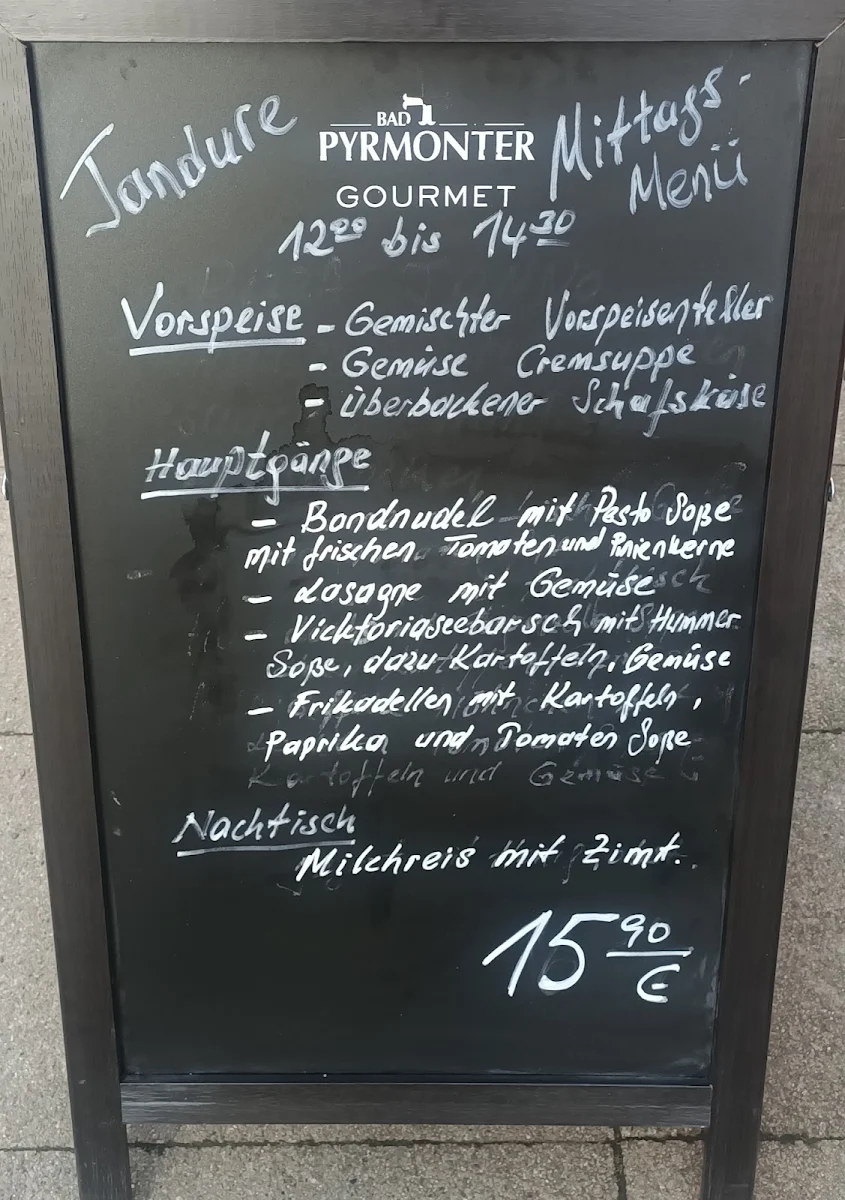 Jandure
BAD
PYRMONTER
GOURMET
Mittags-
Menü
12⁰⁰ bis 14³⁰
Vorspeise - Gemischter Vorspeisenteller
- Gemüse Cremsuppe
- Überbackener Schafskäse
Hauptgänge
- Bandnudel mit Pesto Soße
mit frischen Tomaten und Pinienkerne
- Lasagne mit Gemüse
- Vicktoriaseebarsch mit Hummer
Soße, dazu Kartoffeln, Gemüse
- Frikadellen mit Kartoffeln,
Paprika und Tomaten Soße
Kartoffeln und Gemüse
Nachtisch
Milchreis mit Zimt.
15⁹⁰ €